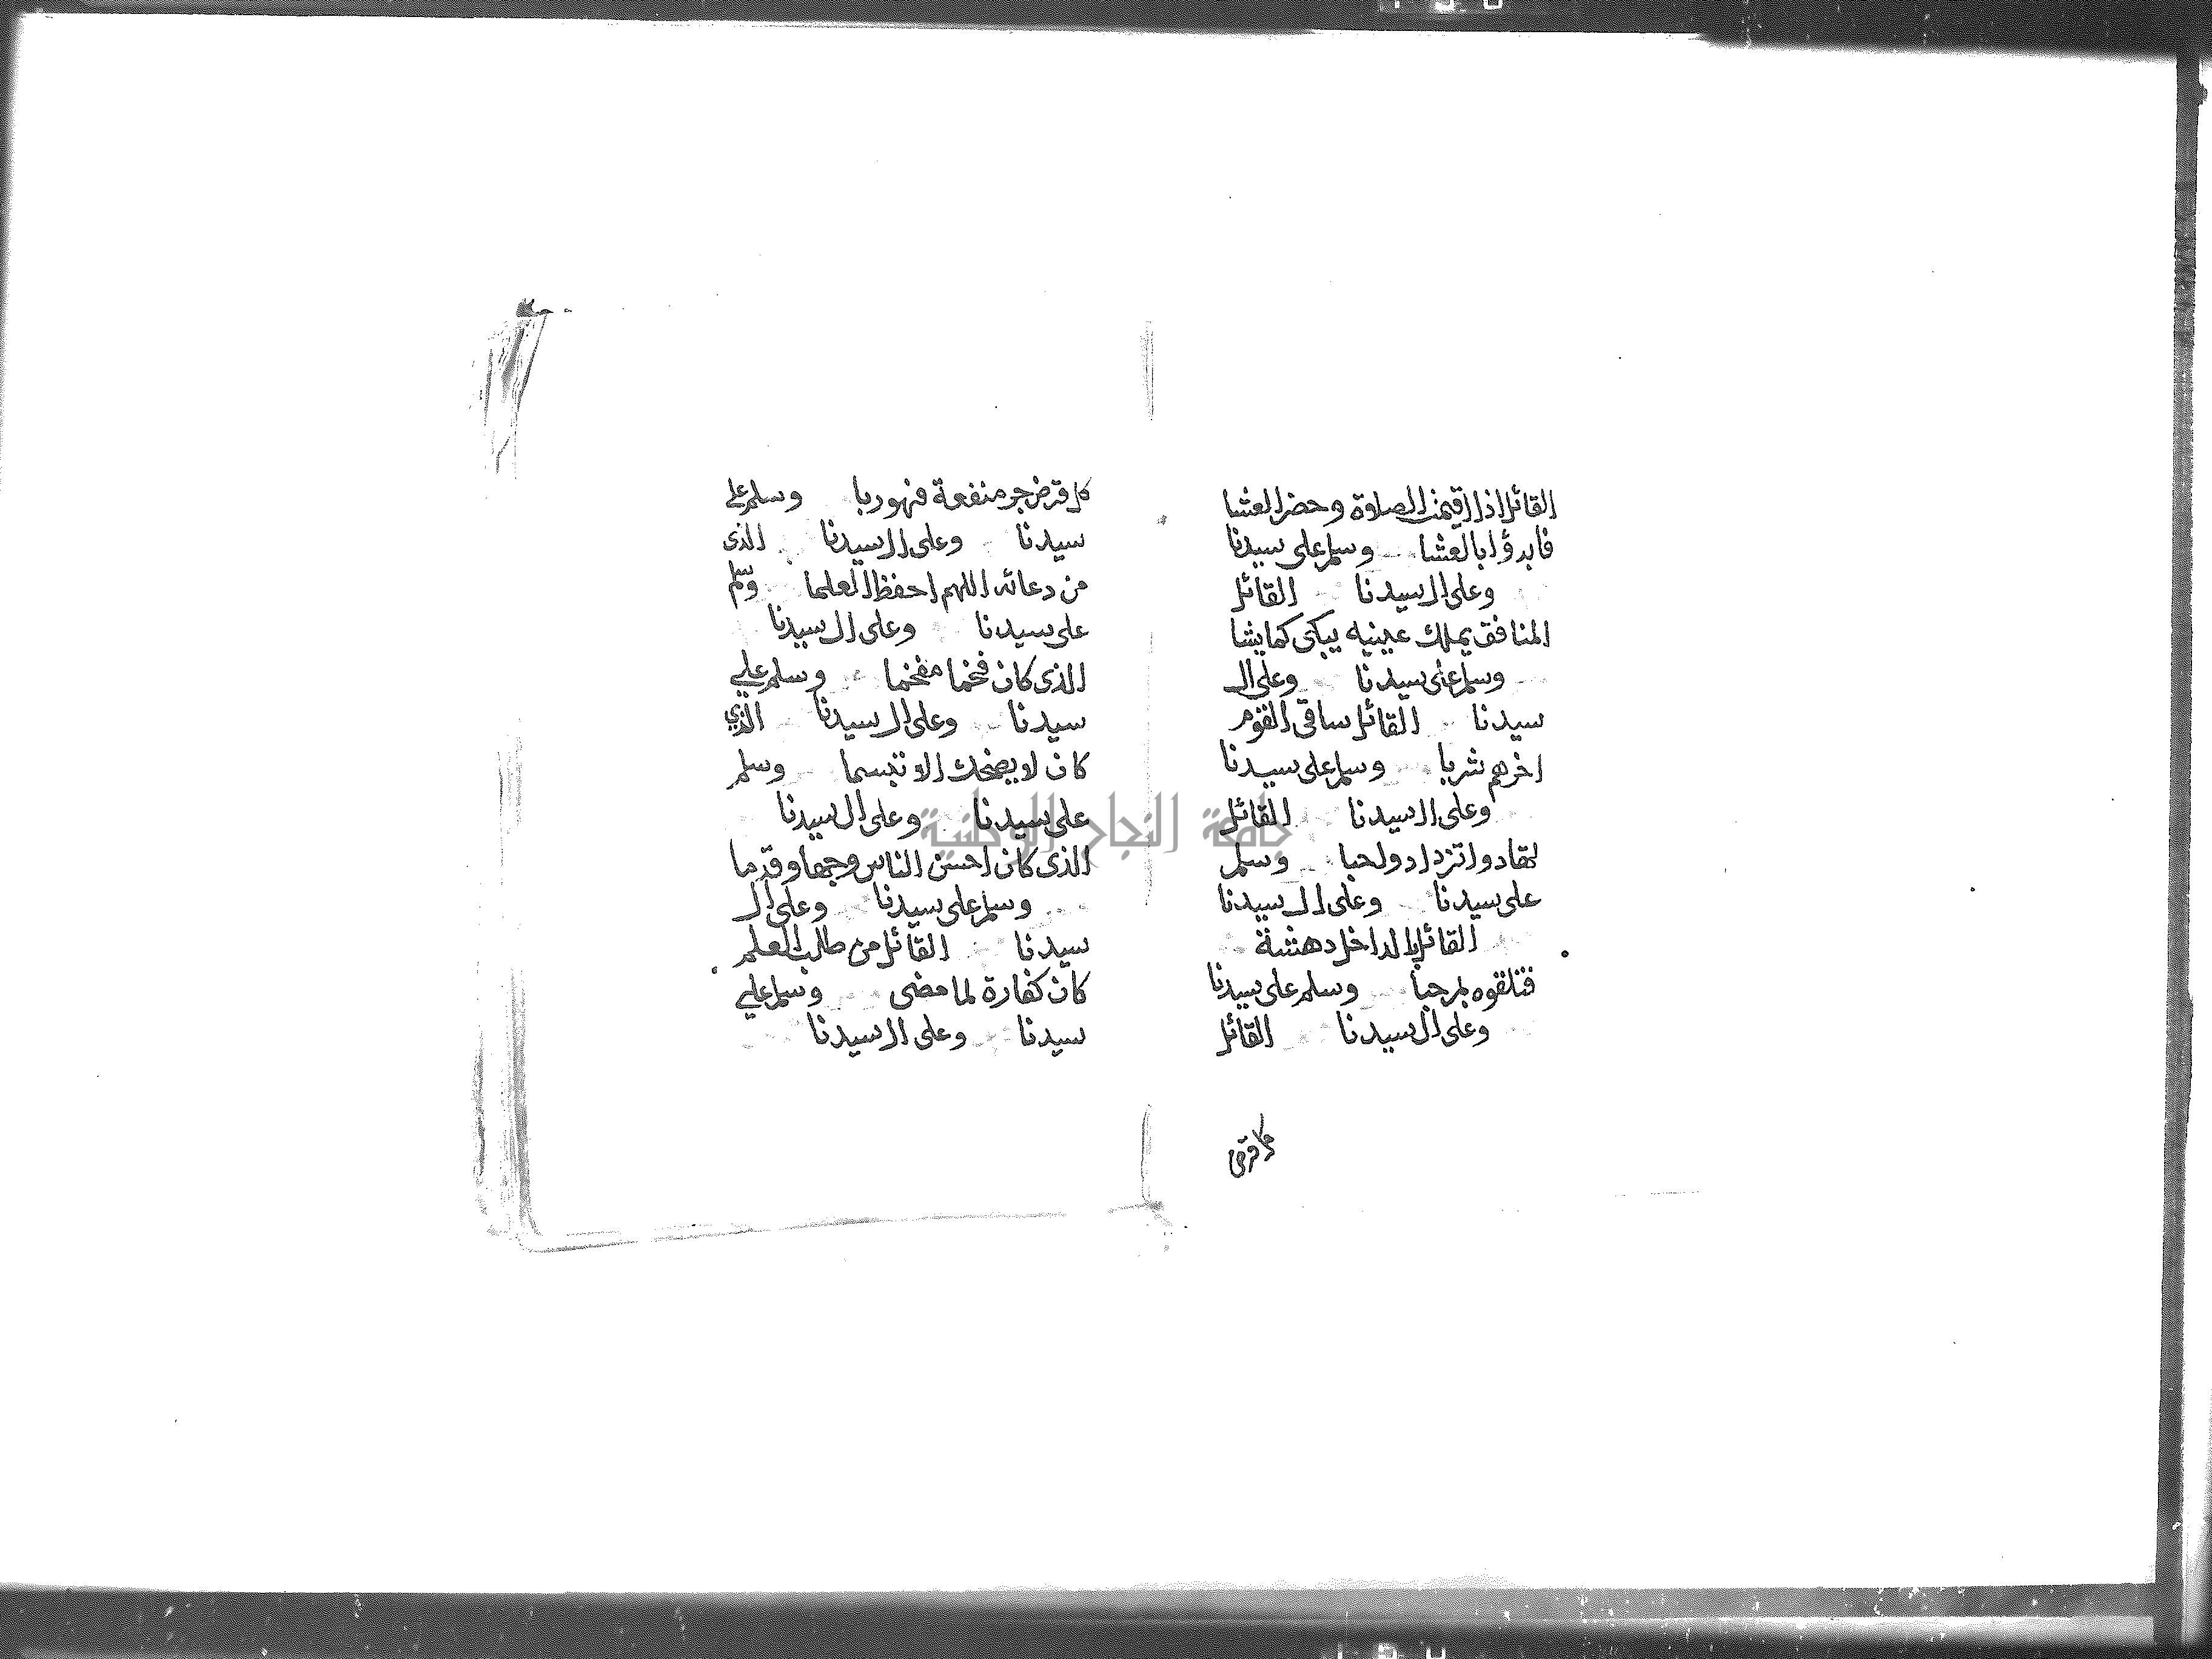 القائل اذا اقيمت الصلاة وحضر العشا
فابدؤا بالعشا وسلم على سيدنا
وعلى ال سيدنا القائل
المنافق يملك عينيه يبكى كما يشا
وسلم على سيدنا وعلى ال
سيدنا القائل ساقى القوم
اخرهم شربا وسلم على سيدنا
وعلى ال سيدنا القائل
تهادوا تزدادوا حبا وسلم
على سيدنا وعلى ال سيدنا
القائل الداخل دهشة
فتلقوه بمرحبا وسلم على سيدنا
وعلى ال سيدنا القائل
كل قرض
كل قرض جر منفعة فهو ربا وسلم على
سيدنا وعلى ال سيدنا الذى
من دعائه اللهم احفظ العلما وسلم
على سيدنا وعلى ال سيدنا
الذى كان فخما مفخما وسلم علي
سيدنا وعلى ال سيدنا الذي
كان لا يضحك الا تبسما وسلم
على سيدنا وعلى ال سيدنا
الذى كان احسن الناس وجها وقدما
وسلم على سيدنا وعلى ال
سيدنا القائل من طالب العلم
كان كفارة لما مضى وسلم علي
سيدنا وعلى ال سيدنا
جامعة النجاح الوطنية